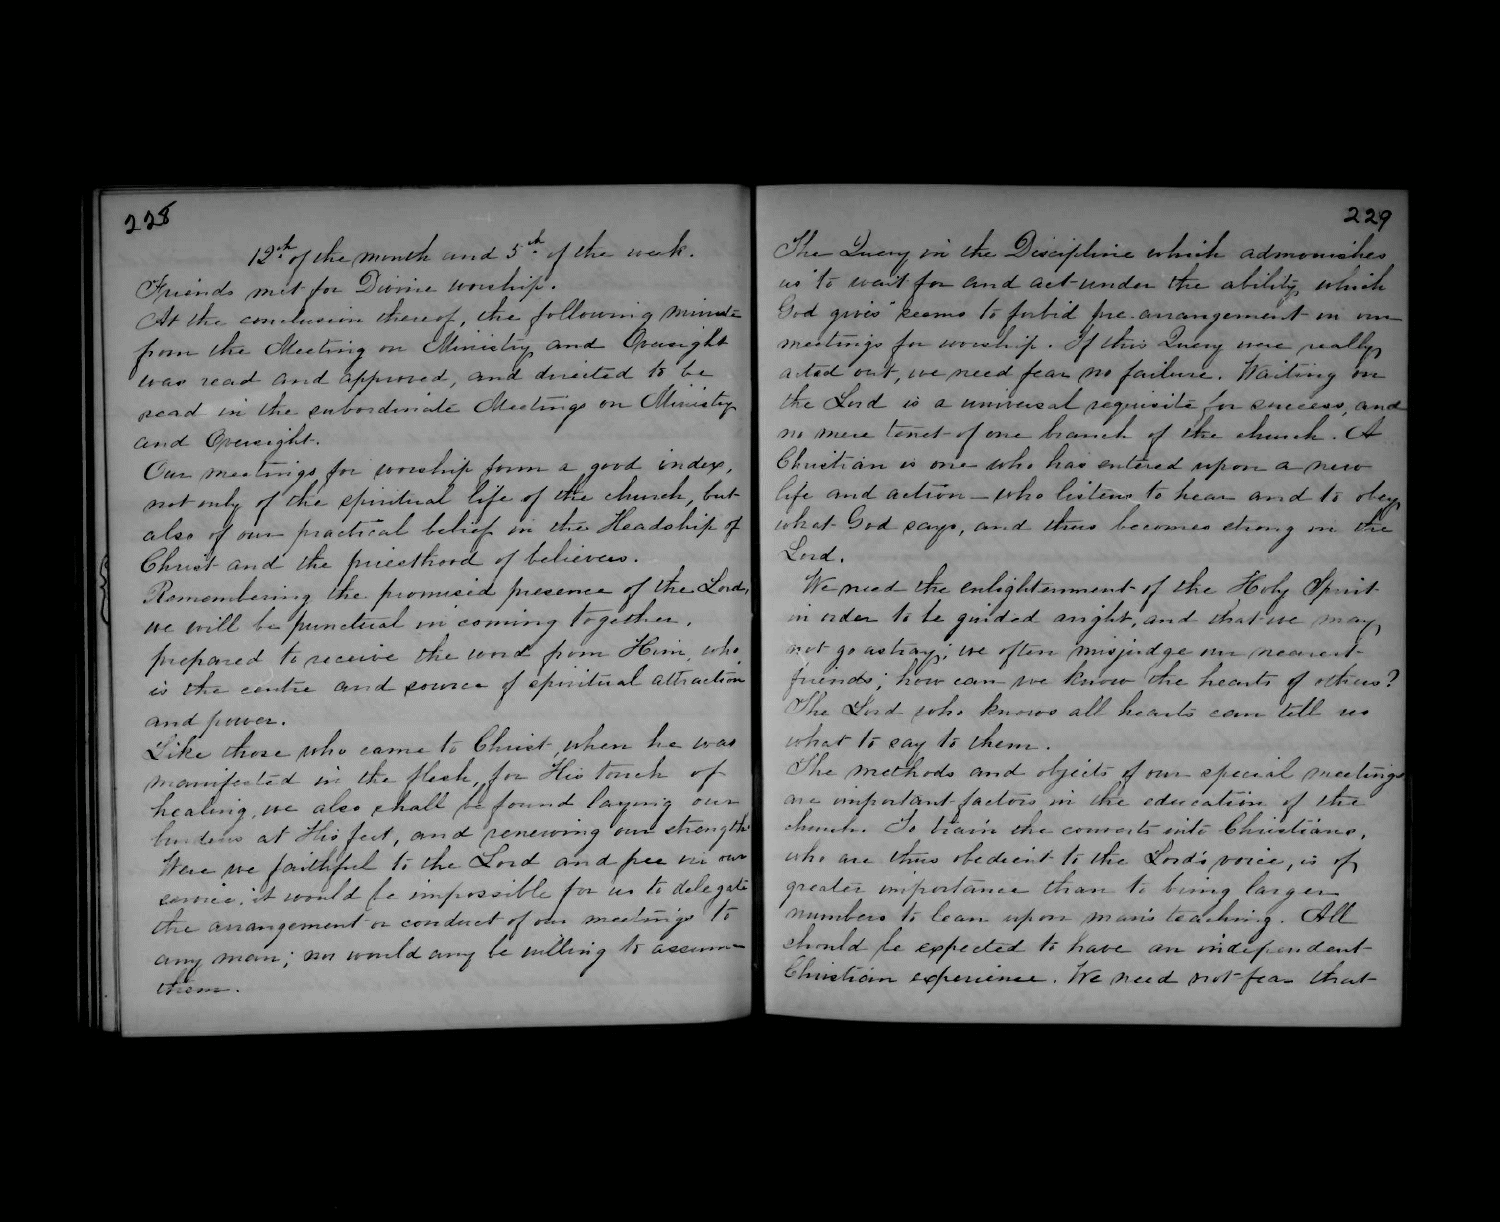 228
12th of the month and 5th of the week.
Friends met for Divine worship.
At the conclusion thereof, the following minute
from the Meeting on Ministry and Oversight
was read and approved, and directed to be
read in the subordinate Meetings on Ministry
and Oversight.
Our meetings for worship form a good index,
not only of the spiritual life of the church, but
also of our practical belief in the Headship of
Christ and the priesthood of believers.
Remembering the promised presence of the Lord,
we will be punctual in coming together,
prepared to receive the word from Him, who
is the centre and source of spiritual attraction
and power.
Like those who came to Christ, when he was
manifested in the flesh, for His touch of
healing, we also shall be found laying our
burdens at His feet, and renewing our strength
Were we faithful to the Lord and free in our
service, it would be impossible for us to delegate
the arrangement or conduct of our meetings to
any man; nor would any be willing to assume
them.
229
The Query in the Discipline which admonishes
us "to wait for and act under the ability which
God gives" seems to forbid pre-arrangement in our
meetings for worship. If this Query were really
acted out, we need fear no failure. Waiting on
the Lord is a universal requisite for success, and
no mere tenet of one branch of the church. A
Christian is one who has entered upon a new
life and action – who listens to hear and to obey
what God says, and thus becomes strong in the
Lord.
We need the enlightenment of the Holy Spirit
in order to be guided aright, and that we may
not go astray; we often misjudge our nearest
friends; how can we know the hearts of others?
The Lord who knows all hearts can tell us
what to say to them.
The methods and objects of our special meetings
are important factors in the education of the
church. To train the converts into Christians,
who are thus obedient to the Lord's voice, is of
greater importance than to bring larger
numbers to lean upon man's teaching. All
should be expected to have an independent
Christian experience. We need not fear that